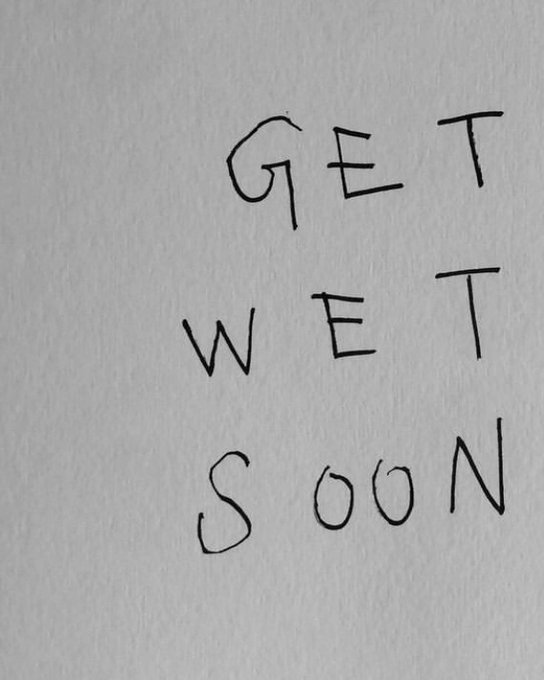 GET
WET
SOON